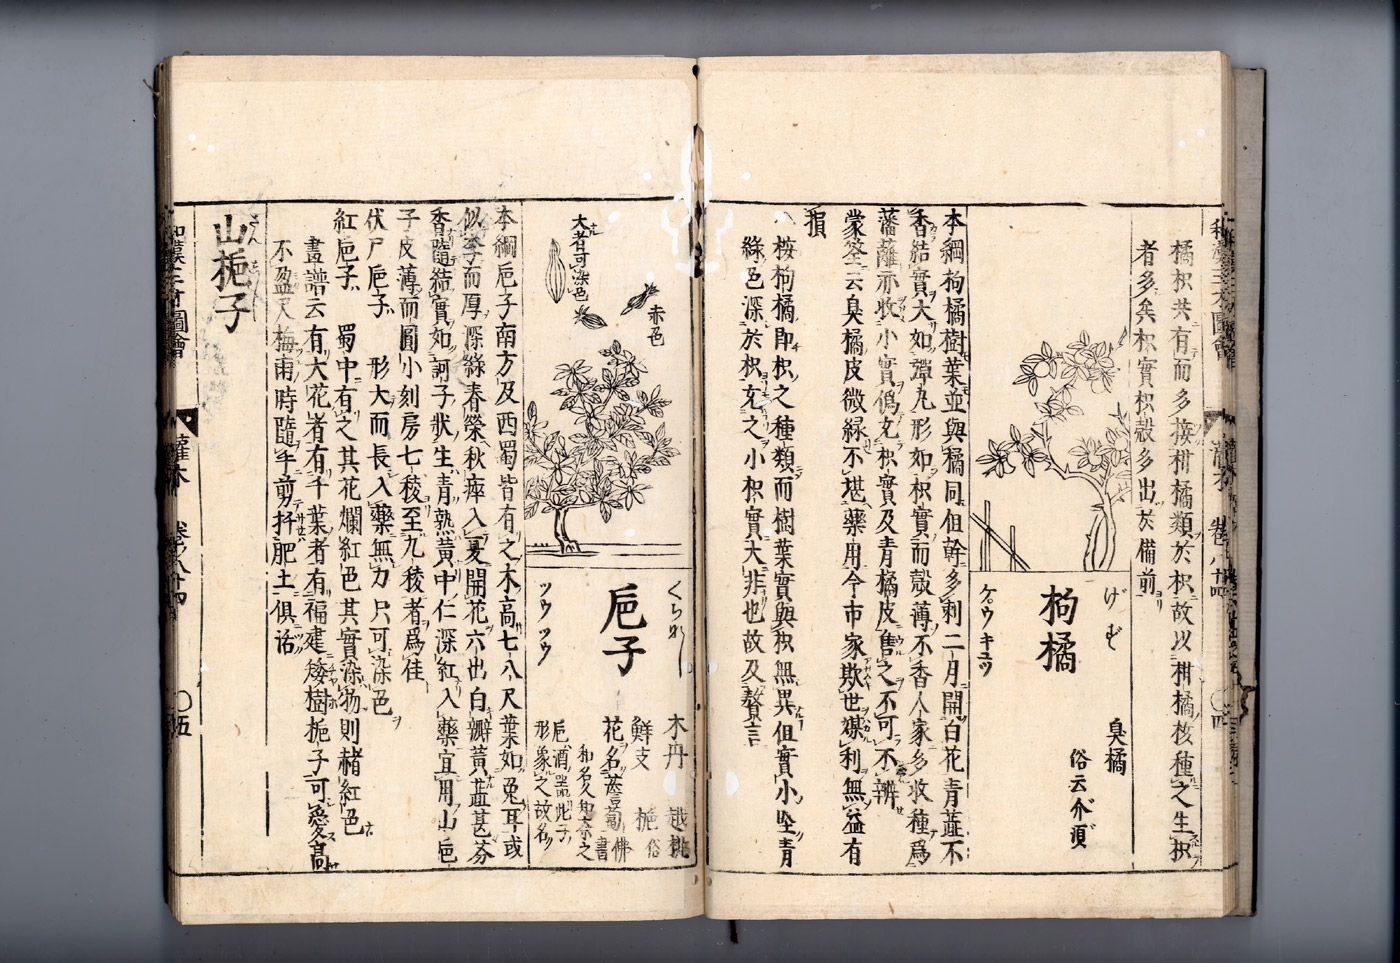 橘枳共有而多接柑橘類於枳故以柑橘核種之生枳
者多矣枳實枳殼多出於備前
げず
枸橘
ケ゚ウキユツ
臭橘
俗云介須
本綱枸橘樹葉並與橘同但幹多刺二月開白花青蕋不
香結實大如彈丸形如枳實而殼薄不香人家多收種爲
藩蘺亦收小實僞充枳實及青橘皮售之不可不辨
蒙筌云臭橘皮微緑不堪藥用今市家欺世媒利無益有
損
△按枸橘即枳之種類而樹葉實與枳無異但實小堅青
綠色深於枳充之小枳實大非也故及贅言
赤色
大者可染色
くちなし
巵子
ツウ ツウ
木丹 越桃
鮮支 梔 俗
花名薝蔔 佛書
和名久知奈之
巵酒噐此子
形象之故名
本綱巵子南方及西蜀皆有之木高七八尺葉如兔耳或
似李而厚深綠春榮秋瘁入夏開花六出白瓣黃蕋甚芬
香隨結實如訶子狀生青熟黃中仁深紅入藥宜用山巵
子皮薄而圓小刻房七稜至九稜者爲佳
伏尸巵子 形大而長入藥無力只可染色
紅巵子 蜀中有之其花爛紅色其實染物則赭紅色
畫譜云有大花者有千葉者有福建矮樹梔子可愛高
不盈尺梅雨時隨年剪扦肥土俱活
山梔子
和漢三才圖會
灌木
卷之八十四
〇五